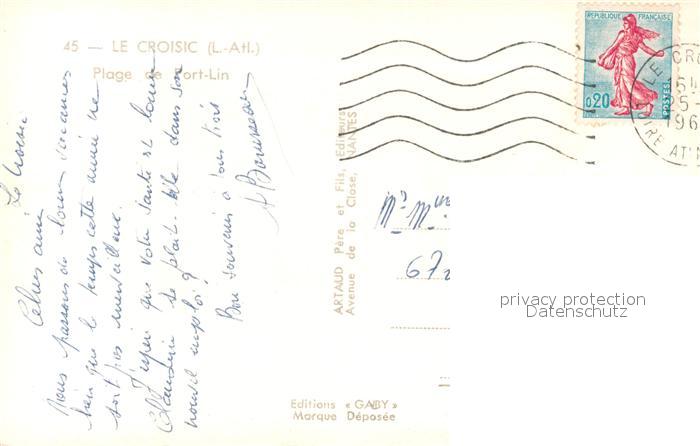 45 — LE CROISIC (L.-Atl.)
Plage de Port-Lin
Le Croisic
Chers amis
Nous passons de bonnes vacances
bien que le temps cette année ne
soit pas merveilleux.
J'espère que votre santé est bonne
Claudine se plait-elle dans son
nouvel emploi?
Bon souvenir à tous trois
ARTAUD Père et Fils, Editeurs
Avenue de la Close, NANTES
Editions « GABY »
Marque Déposée
REPUBLIQUE FRANÇAISE
0,20
POSTES
LE CRO
25
196
LOIRE ATL
Mr Mme
67
privacy protection
Datenschutz